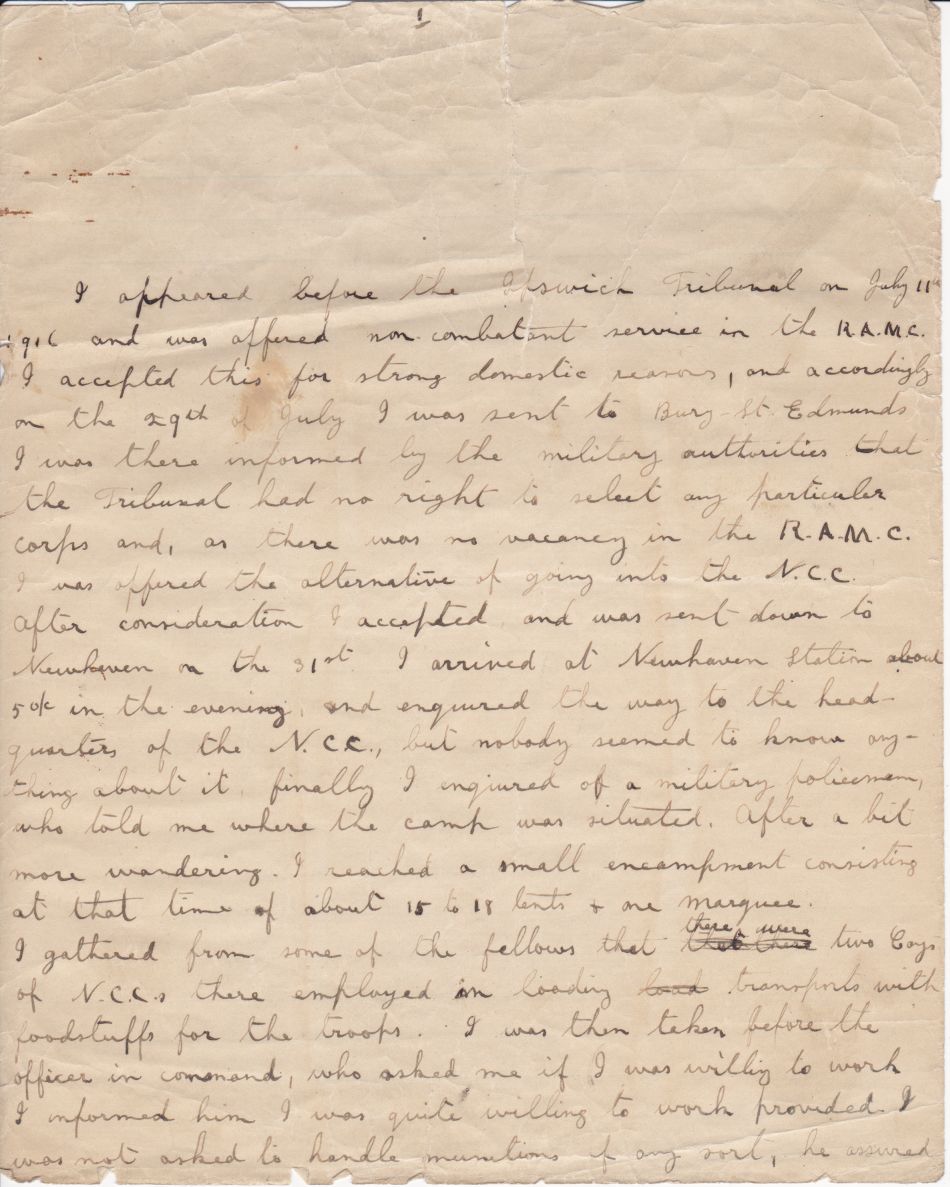 1
I appeared before the Ipswich Tribunal on July 11th
1916 and was offered non combatant service in the R.A.M.C.
I accepted this for strong domestic reasons, and accordingly
on the 29th of July I was sent to Bury-St. Edmunds
I was there informed by the military authorities that
the Tribunal had no right to select any particular
corps and, as there was no vacancy in the R.A.M.C.
I was offered the alternative of going into the N.C.C.
After consideration I accepted and was sent down to
Newhaven on the 31st. I arrived at Newhaven Station about
5 o/c in the evening, and enquired the way to the head-
quarters of the N.C.C., but nobody seemed to know any-
thing about it, finally I enquired of a military policeman,
who told me where the camp was situated. After a bit
more wandering. I reached a small encampment consisting
at that time of about 15 to 18 tents + one marquee.
I gathered from some of the fellows that ~~that there~~ there were two Coys
of N.C.C.s there employed in loading ~~load~~ transports with
foodstuffs for the troops. I was then taken before the
officer in command, who asked me if I was willing to work
I informed him I was quite willing to work provided I
was not asked to handle munitions of any sort, he assured